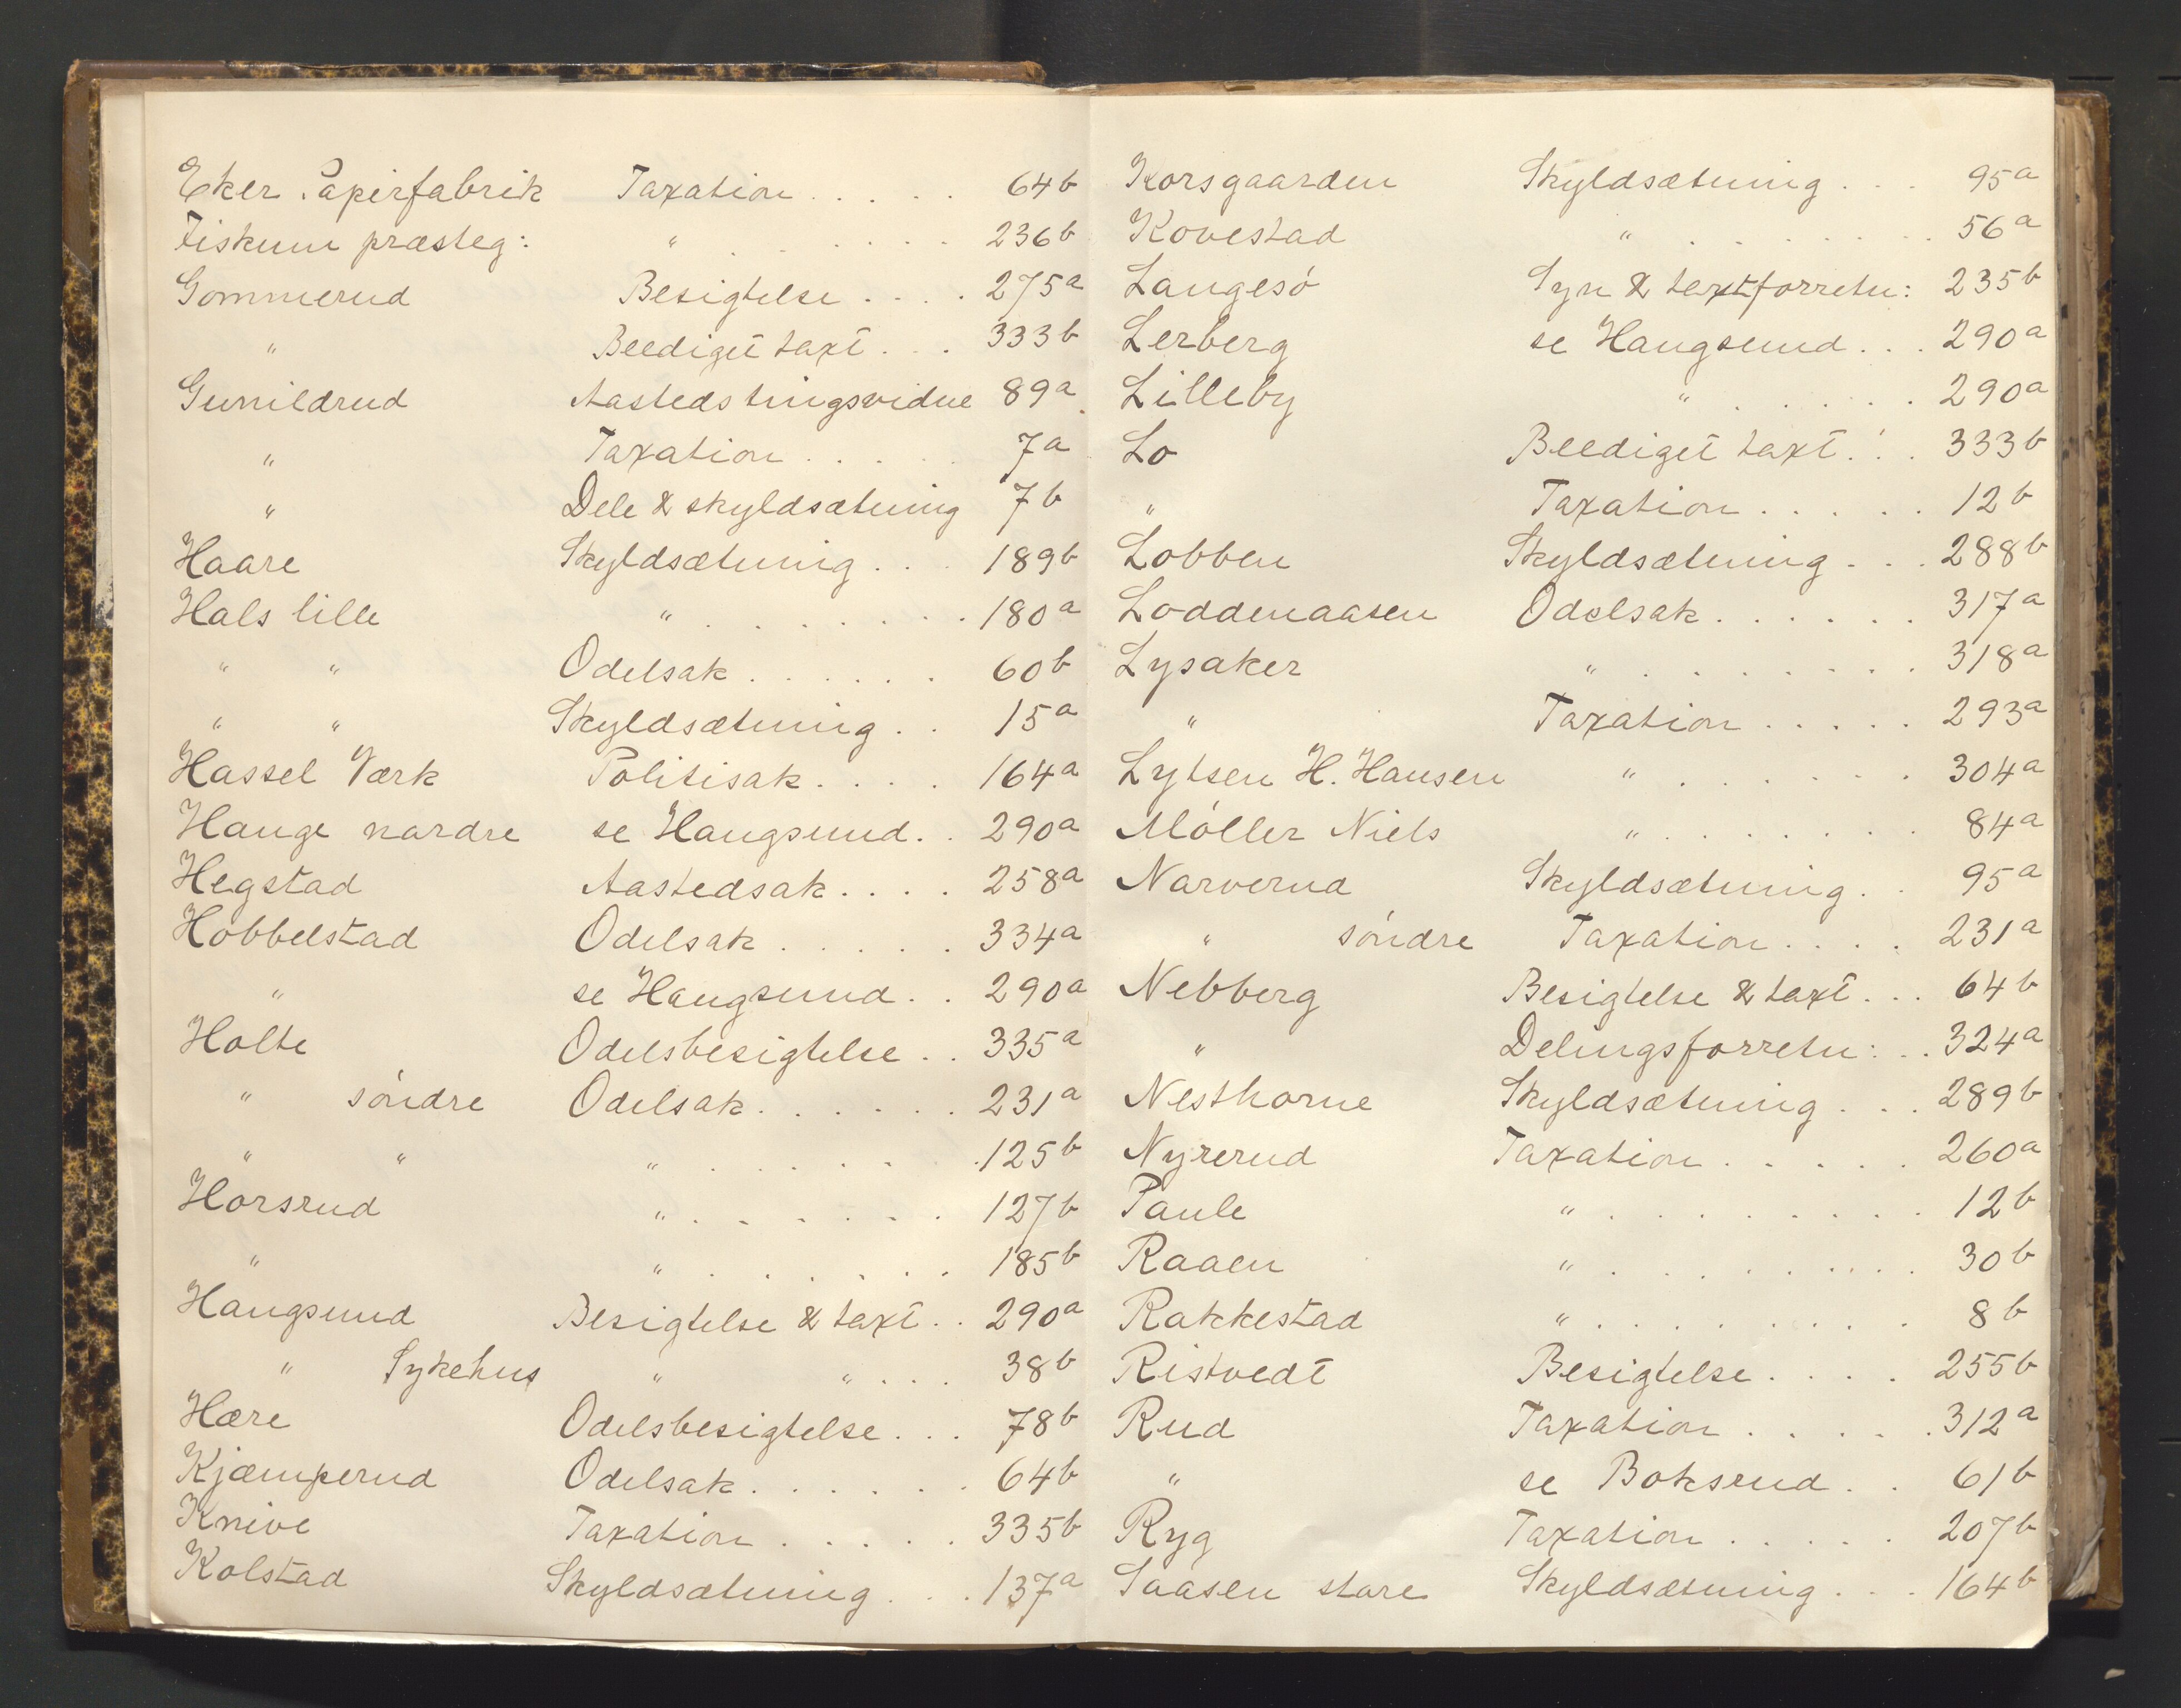 Eker Papirfabrik Taxation . . . . . 64b
Fiskum præsteg: " . . . . . 236b
Gommerud Besigtelse . . . . 275a
" Beediget taxt . . . 333b
Gunildrud Aasteds tingsvidne 89a
" Taxation . . . . . 7a
" Dele & skyldsætning 7b
Haare Skyldsætning . . . 189b
Hals lille " . . . . . . . . 180a
" " Odelsak . . . . . . 60b
" " Skyldsætning . . 15a
Hassel Værk Politisak . . . . 164a
Hauge nordre se Haugsund . . 290a
Hegstad Aastedsak . . . . 258a
Hobbelstad Odelsak . . . . . 334a
" se Haugsund . . 290a
Holte Odelsbesigtelse . . 335a
" söndre Odelsak . . . . . . 231a
" " " . . . . . . 125b
Horsrud " . . . . . . 127b
" " . . . . . . 185b
Haugsund Besigtelse & taxt . . 290a
" Sykehus " " . . . 38b
Hære Odelsbesigtelse . . . 78b
Kjæmperud Odelsak . . . . . . 64b
Knive Taxation . . . . . 335b
Kolstad Skyldsætning . . . 137a
Korsgaarden Skyldsætning . . . 95a
Kovestad " . . . . . . . 56a
Langesö Syn & taxtforretn: 235b
Lerberg se Haugsund . . . 290a
Lilleby " . . . . . . 290a
Lo Beediget taxt . . . 333b
" Taxation . . . . . 12b
Lobben Skyldsætning . . . 288b
Loddenaasen Odelsak . . . . . . 317a
Lysaker " . . . . . . . 318a
" Taxation . . . . . 293a
Lytsen H. Hansen " . . . . . . 304a
Möller Niels " . . . . . . . 84a
Narverud Skyldsætning . . 95a
" söndre Taxation . . . . 231a
Nebberg Besigtelse & taxt . . . 64b
" Delingsforretn: . . 324a
Nesthorne Skyldsætning . . . 289b
Nyrerud Taxation . . . . . 260a
Paule " . . . . . . . . 12b
Raaen " . . . . . . . . 30b
Rakkestad " . . . . . . . . 8b
Ristvedt Besigtelse . . . . 255b
Rud Taxation . . . . . 312a
" se Boksrud . . 61b
Ryg Taxation . . . . . 207b
Saasen store Skyldsætning . . . 164b